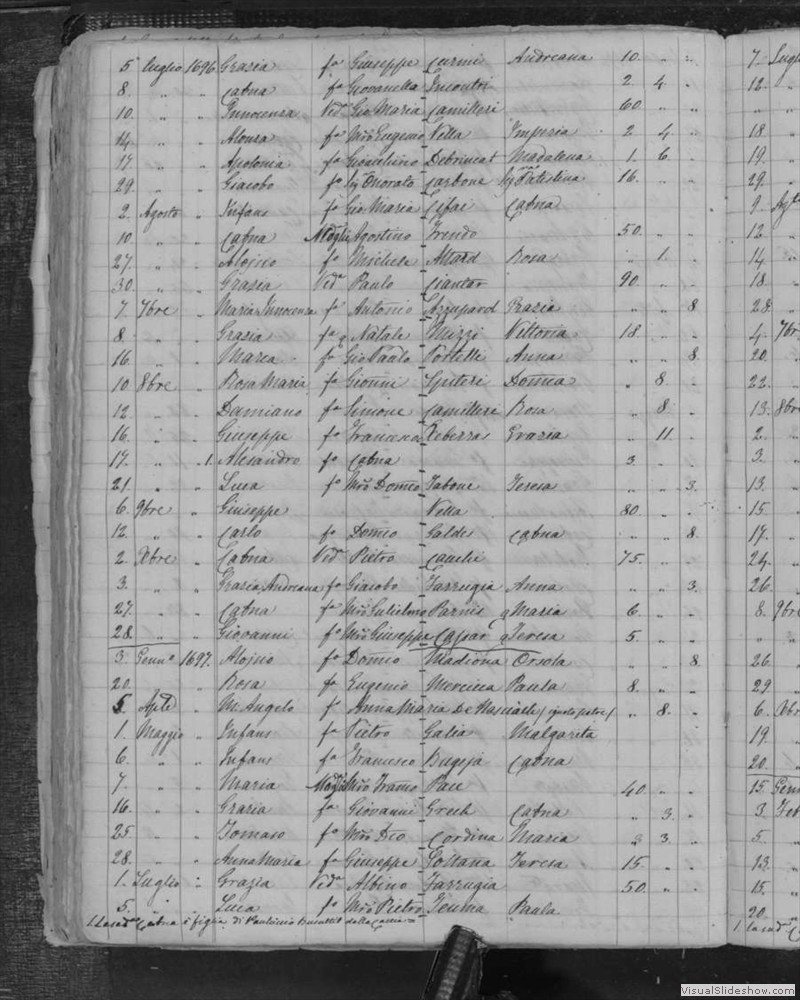 5 luglio 1696 Grazia fa Giuseppe Curmi Andreana 10 " "
8. " " Catna fa Giovanella Incontri 2. 4.
10. " " Innocenza Veda Gio Maria Camilleri 60. " "
14. " " Alonza fa Mro Eugenio Vella Imperia 2 4.
17 " " Apolonia fa Gioachino Debrincat Madalena 1. 6.
29. " " Giacobo fo Sig Onorato Carbone Sig Batistina 16. "
2. Agosto " Infans fo Gio Maria Catna
10. " " Catna Moglie Agostino 50. "
27. " " Aloiseo fo Michele Attard Rosa " 1.
30. " " Grazia Veda Paulo Ciantar 90. "
7. 7bre " Maria Innocenza fa Antonio Azzupard Grazia " " 8
8. " " Grazia fa q Natale Mizzi Vittoria 18. "
16. " " Marca fa Gio Paulo Portelli Anna " " 8.
10 8bre " Rosa Maria fa Gionni Spiteri Domca " 8.
12 " " Damiano fo Simone Camilleri Rosa " 8.
16. " " Giuseppe fo Francesco Grazia " 11.
17. " " 1. Alesandro fo Catna 3.
21. " " Luca fo Mro Domco Tabone Teresa " " 3.
6. 9bre " Giuseppe Vella 80. "
12. " " Carlo fo Domco Galdes Catna " " 8.
2. Xbre " Catna Veda Pietro 75. "
3. " " Grazia Andreana fa Giacobo Farrugia Anna " " 3.
27. " " Catna fa Mro Gulielmo Parnis q Maria 6. "
28. " " Giovanni fo Mro Giuseppe q Teresa 5.
3. Gennro 1697. Aloiseo fo Domco Madiona Orsola " " 8.
20. " " Rosa fa Eugenio Mercieca Paula 8. "
5 Aple " M. Angelo fo Anna Maria De (ignoto patre) " 8.
1. Maggio " Infans fo Pietro Galia Malgarita
6. " " Infans fo Francesco Bugeja Catna
7. " " Maria Moglie Mro Franco Pace 40. "
16. " " Grazia fa Giovanni Grech Catna " 3.
25 " " Tomaso fo Mro Deo Cordina Maria " 3.
28. " " Anna Maria fa Giuseppe Teresa 15
1. Luglio " Grazia Veda Albino Farrugia 50.
5. " " Luca fo Mro Pietro Teuma Paula
Catna figlia di
7. Lugl
12. "
" "
18. "
19. "
29. "
9. Agto
12. "
14. "
18. "
28. "
4. 7br
20. "
22. "
13. 8bre
2. "
3. "
13. "
15. "
17. "
24. "
26. "
8. 9bre
" "
26. "
29. "
6. Xbr
19. "
20. "
15. Genn
3. Feb
5. "
13. "
15. "
20. "
VisualSlideshow.com